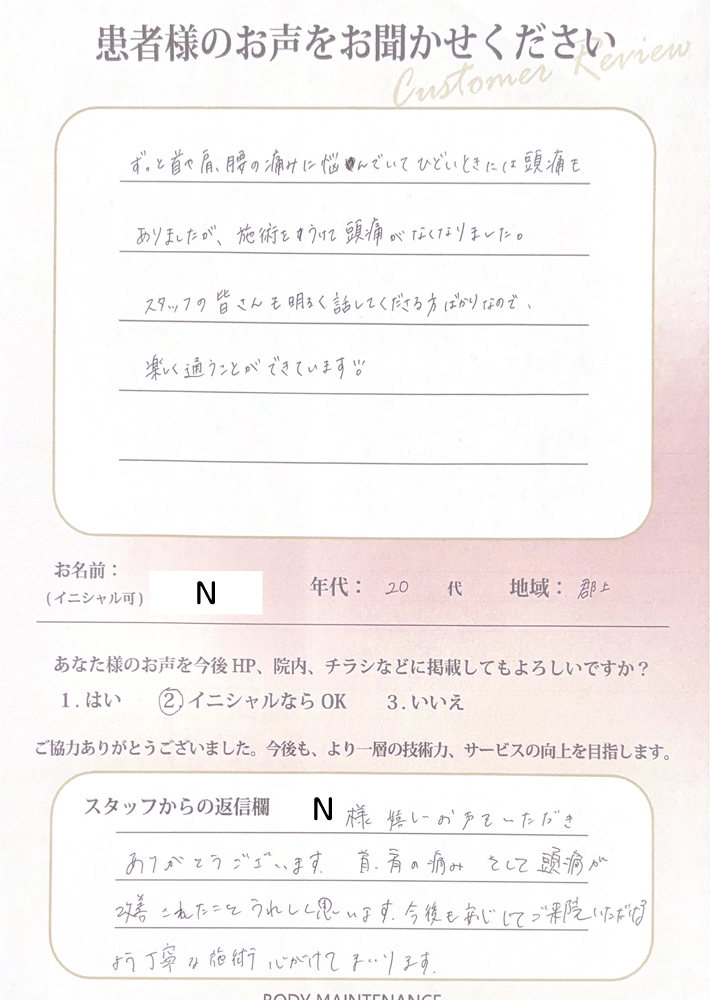 患者様のお声をお聞かせください
Customer Review
ずっと首や肩、腰の痛みに悩んでいてひどいときには頭痛も
ありましたが、施術をうけて頭痛がなくなりました。
スタッフの皆さんも明るく話してくださる方ばかりなので、
楽しく通うことができています
お名前：
(イニシャル可) N 年代： 20 代 地域： 郡上
あなた様のお声を今後HP、院内、チラシなどに掲載してもよろしいですか？
1.はい ②.イニシャルならOK 3.いいえ
ご協力ありがとうございました。今後も、より一層の技術力、サービスの向上を目指します。
スタッフからの返信欄 N 様 嬉しいお声をいただき
ありがとうございます。首、肩の痛み そして頭痛が
改善されたことうれしく思います。今後も安心してご来院いただける
よう丁寧な施術心がけてまいります。
BODY MAINTENANCE